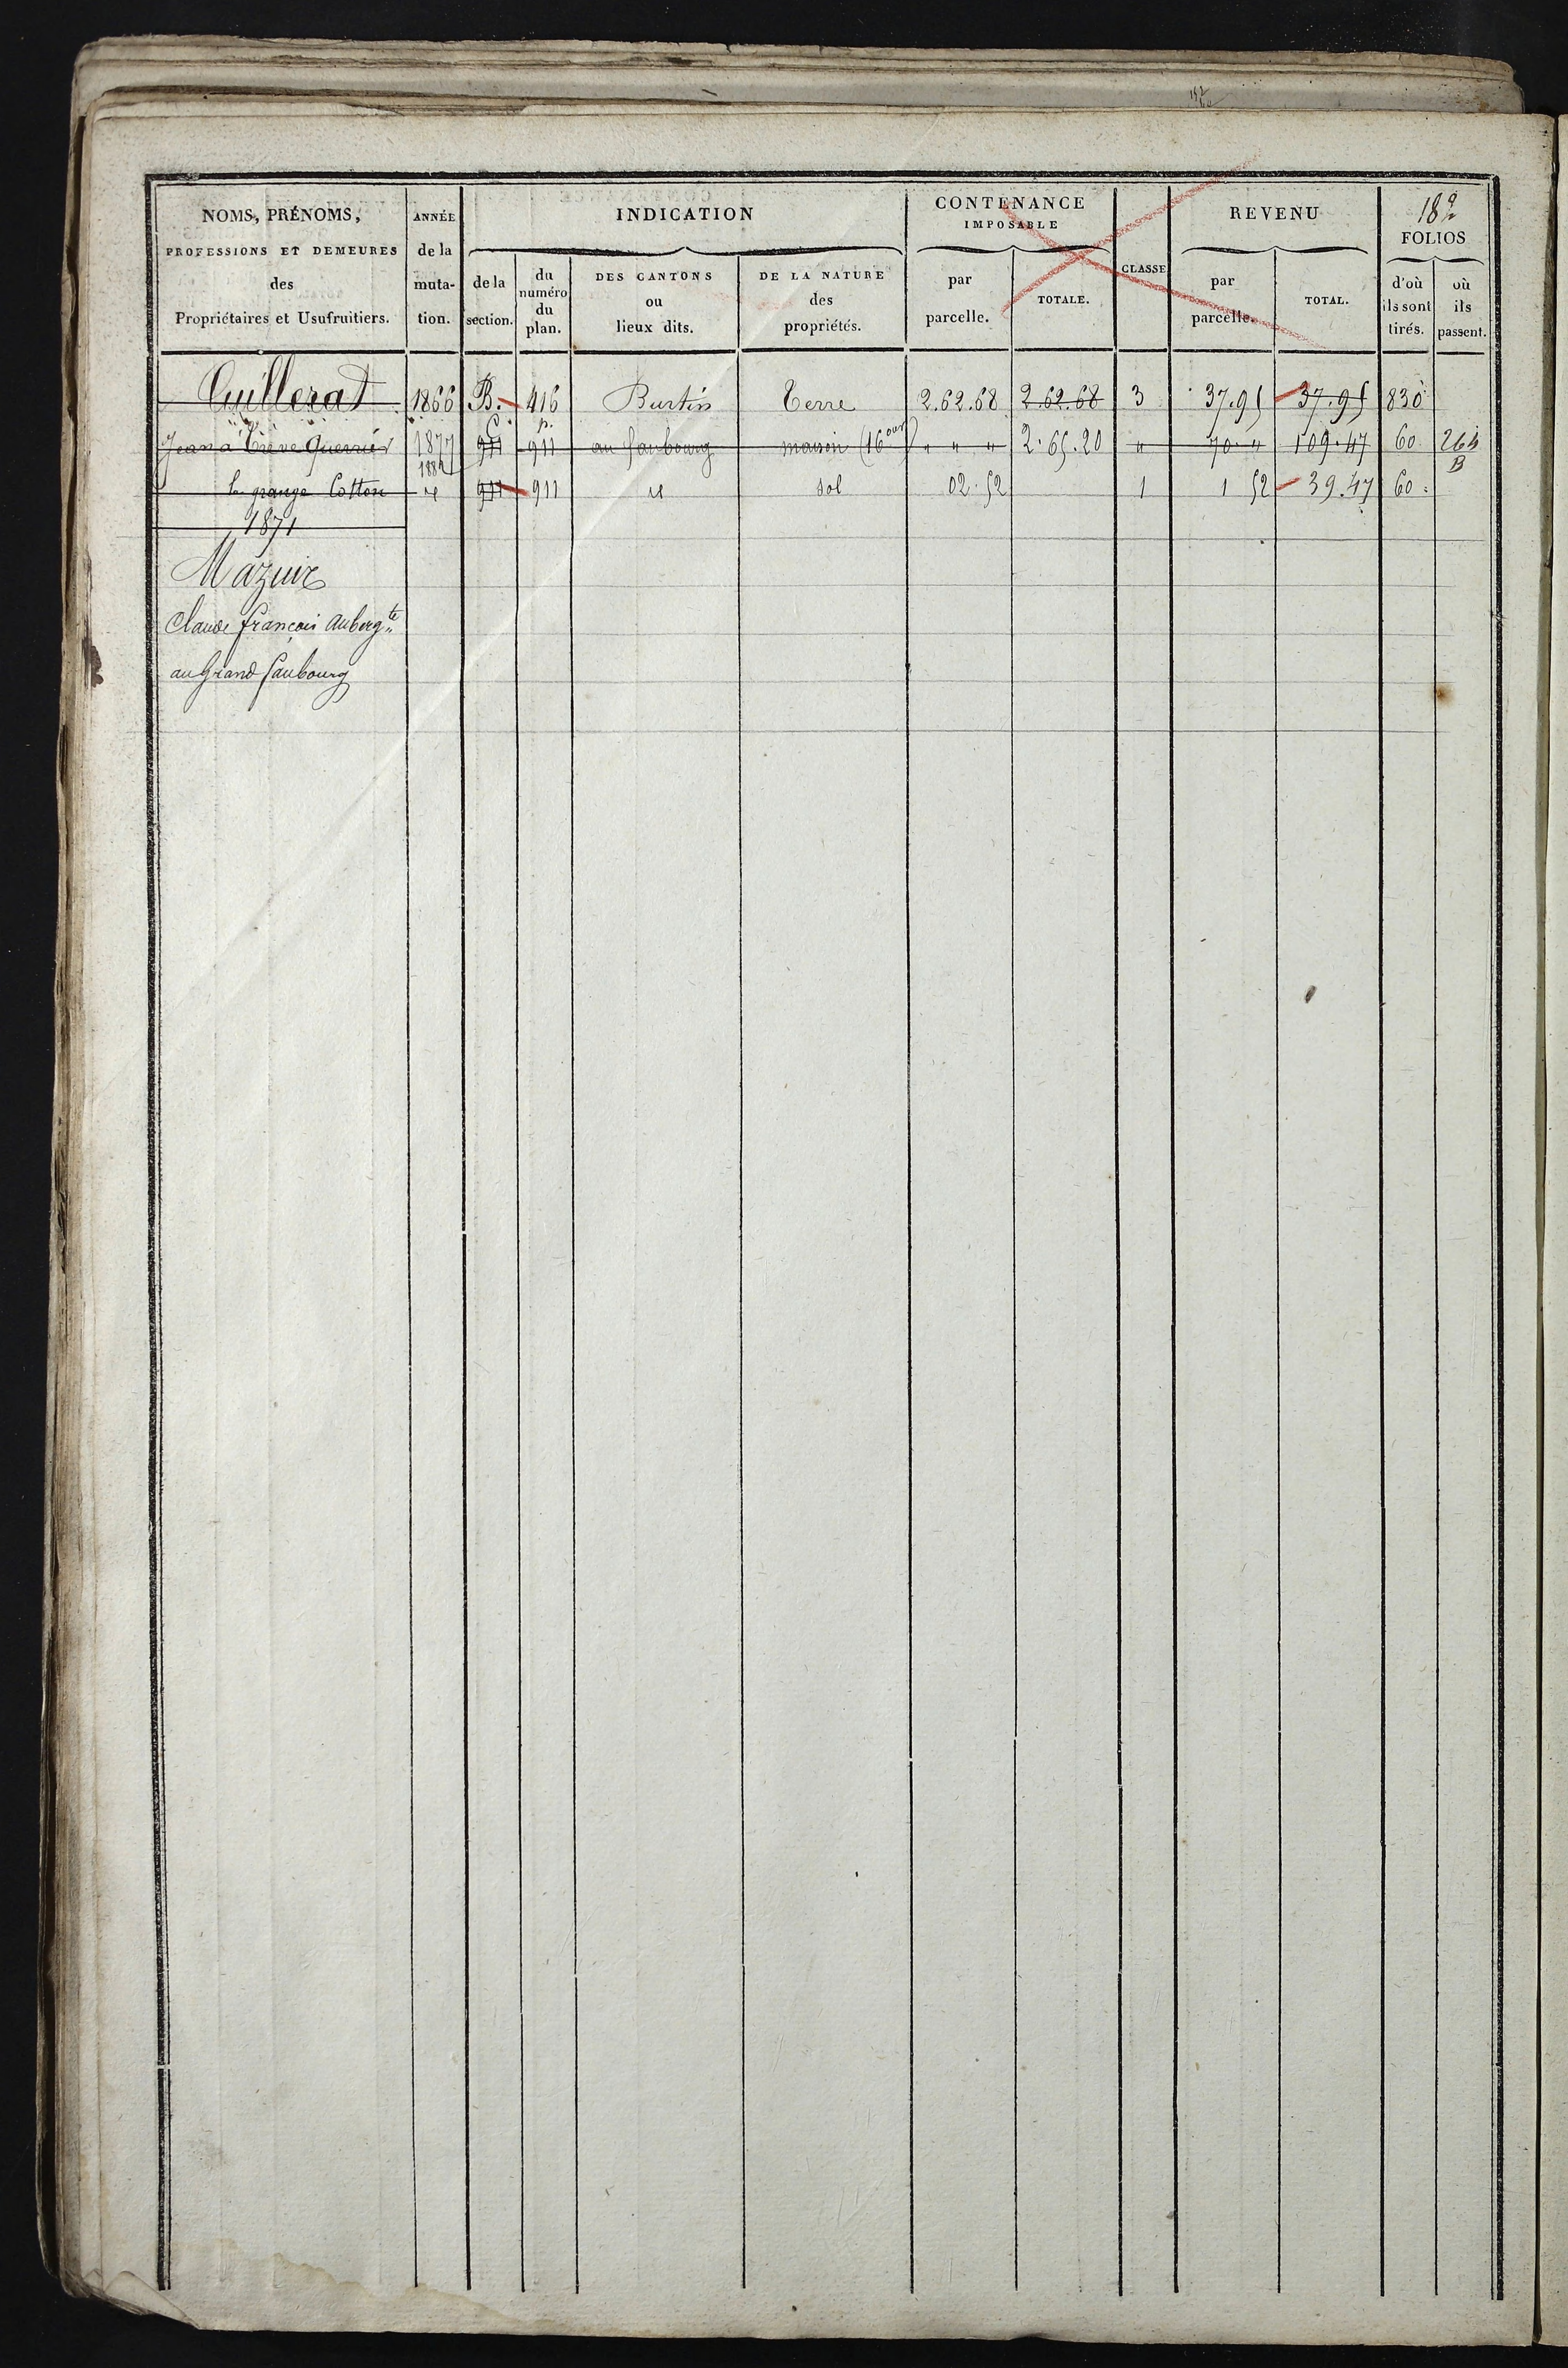 182
NOMS, PRÉNOMS, ANNÉE INDICATION CONTENANCE IMPOSABLE REVENU FOLIOS
PROFESSIONS ET DEMEURES des Propriétaires et Usufruitiers. de la mutation. de la section. du numéro du plan. DES CANTONS ou lieux dits. DE LA NATURE des propriétés. par parcelle. TOTALE. CLASSE par parcelle. TOTAL. d'où ils sont tirés. où ils passent.
Cuillerat 1866 B. 416 Burtin Terre 2.62.68 2.62.68 3 37.95 37.95 830
Jean à Trève Guerrier 1877 C 911 p. au faubourg maison (16 ouv) " " " 2.65.20 " 70 " 109.47 60 264
1882 B
la grange Cotton id 911 id sol 02.52 1 1 52 39.47 60
1871
Mazuir
Claude françois Auberg.te
au Grand faubourg